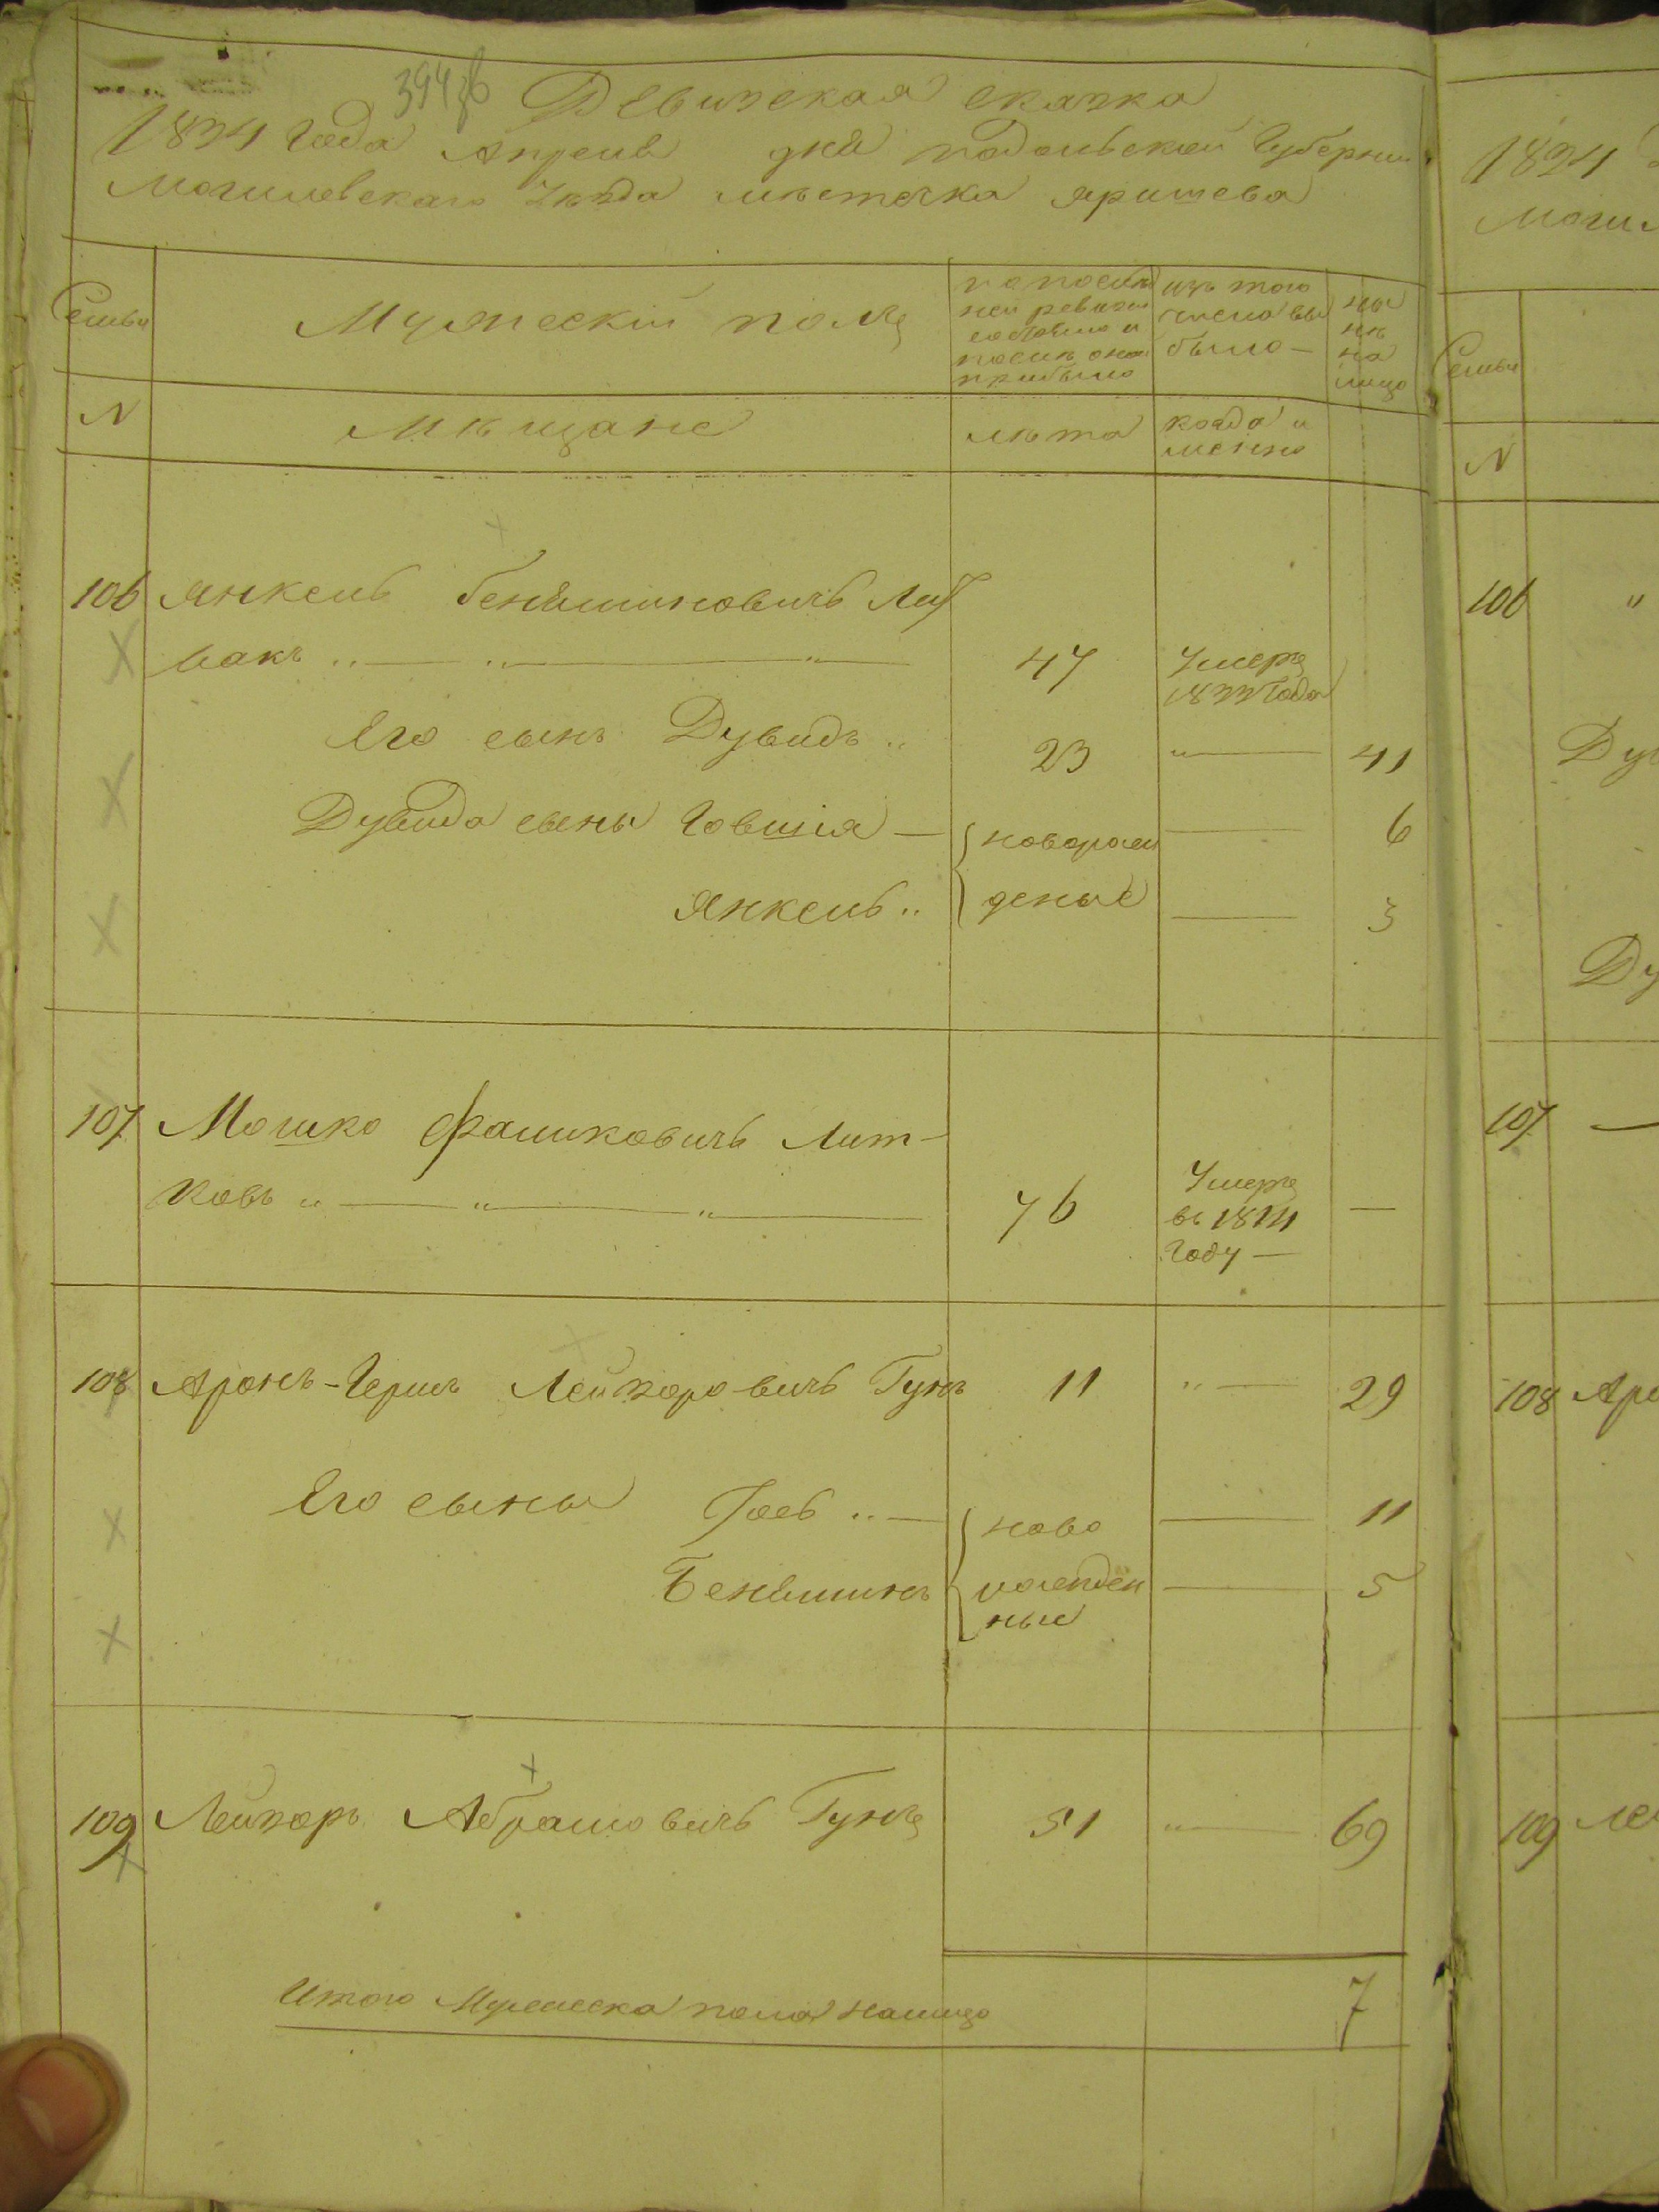 394 зв
Ревизская сказка
1834 Года Апреля дня Подольской Губернии
Могилевскаго Уѣзда мѣстечка Яришева
Семьи
Мужескій полъ
по послѣд
ней ревизіи
состояло и
послѣ оной
прибыло
изъ того
числа вы
было —
ны
нѣ
на
лицо
N
Мѣщане
лѣта
когда и
менно
106 Янкель Бенюминовичъ Лит
вакъ 47 Умеръ
1822 Года
Его сынъ Дувидъ 23 41
Дувида сыны Іовшія — новорож 6
Янкель деные 3
107 Мошко Фаликовичъ Лит-
ковъ 76 Умеръ
въ 1821
Году — —
108 Аронъ-Гершъ Лейзоровичъ Гукъ 11 29
Его сыны Іось ново 11
Бенюминъ рожден 5
ные
109 Лейзоръ Абрамовичъ Гукъ 51 69
Итого Мужеска пола налицо 7
1834
Моги
Семьи
N
106 "
Дув
Ду
107 —
108 Аро
109 Ле